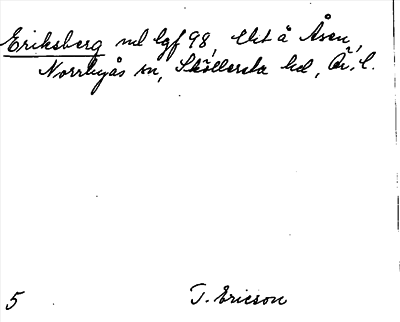 Eriksberg nd lgf 98, Utt å Åsen,
Norrbyås sn, Sköllersta hd, Ör. l.
5 T. Ericson